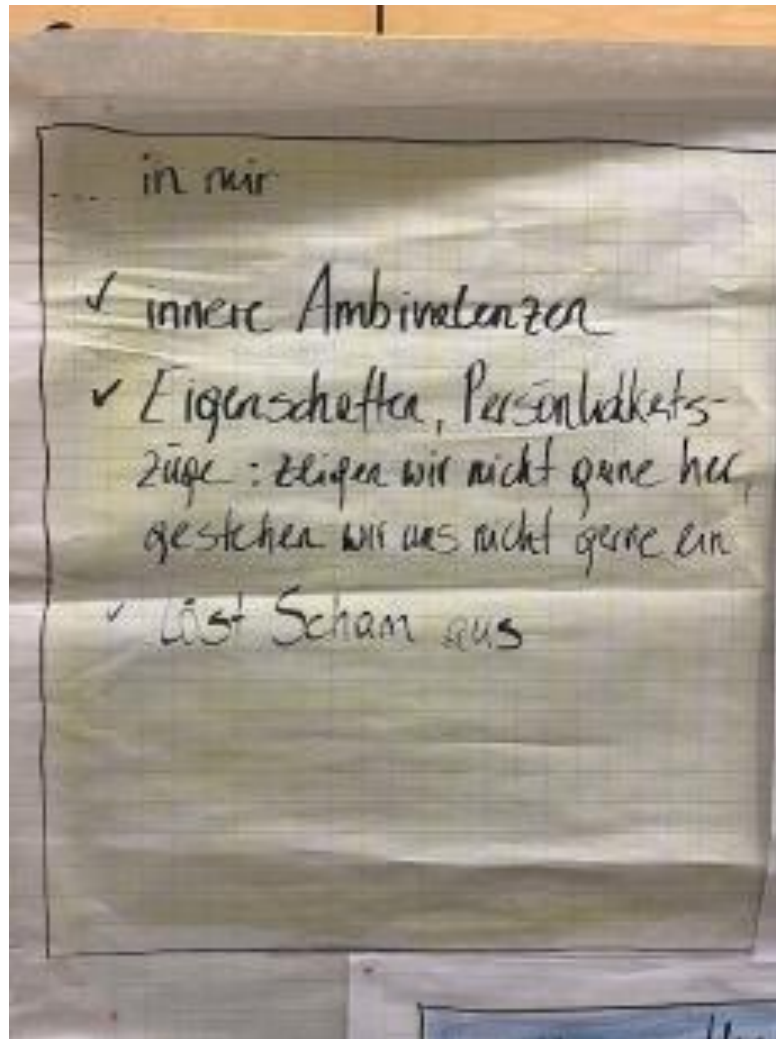 ... in mir
✓ innere Ambivalenzen
✓ Eigenschaften, Persönlichkeits-
züge : zeigen wir nicht gerne her,
gestehen wir uns nicht gerne ein
✓ Löst Scham aus